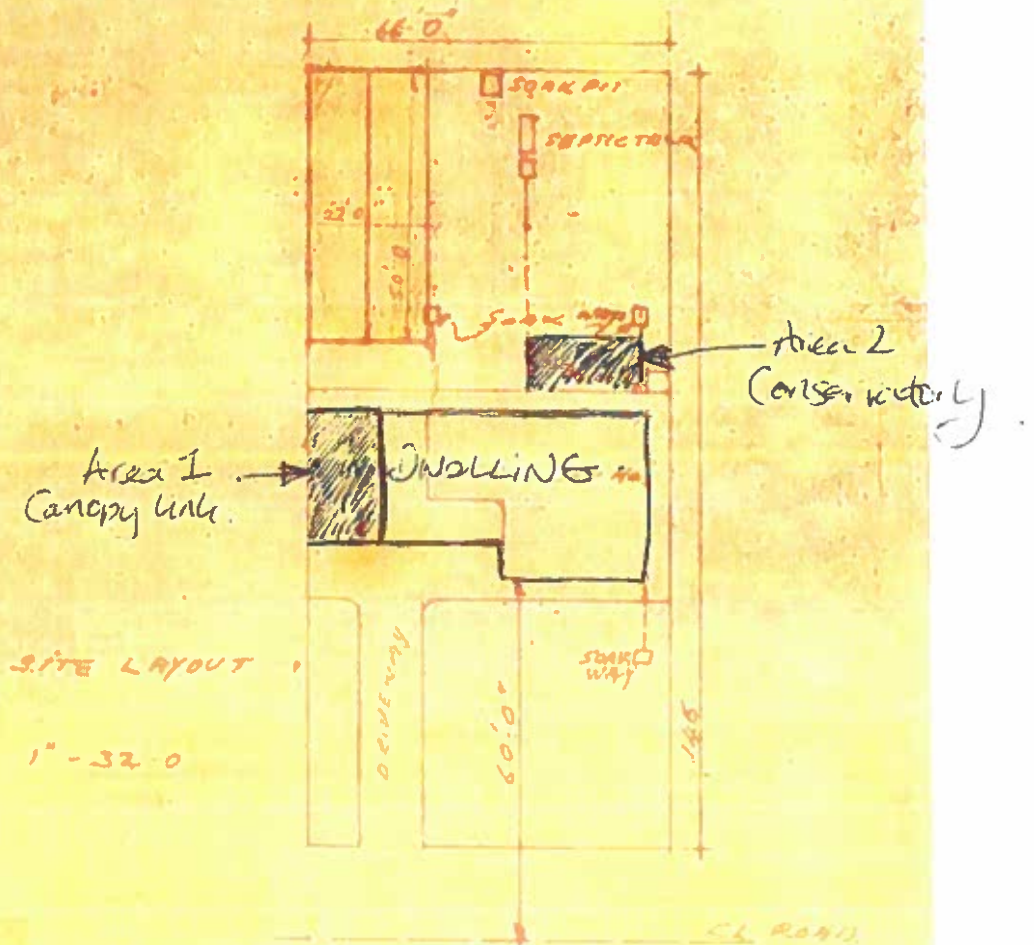 66'0"
SOAK PIT
SEPTIC TANK
22'0"
50'0
Soak
Area 2
Conservatory
Area 1
Canopy link.
DWELLING
SITE LAYOUT
1" - 32 0
DRIVEWAY
60'0"
SOAK
WAY
145
CL ROAD